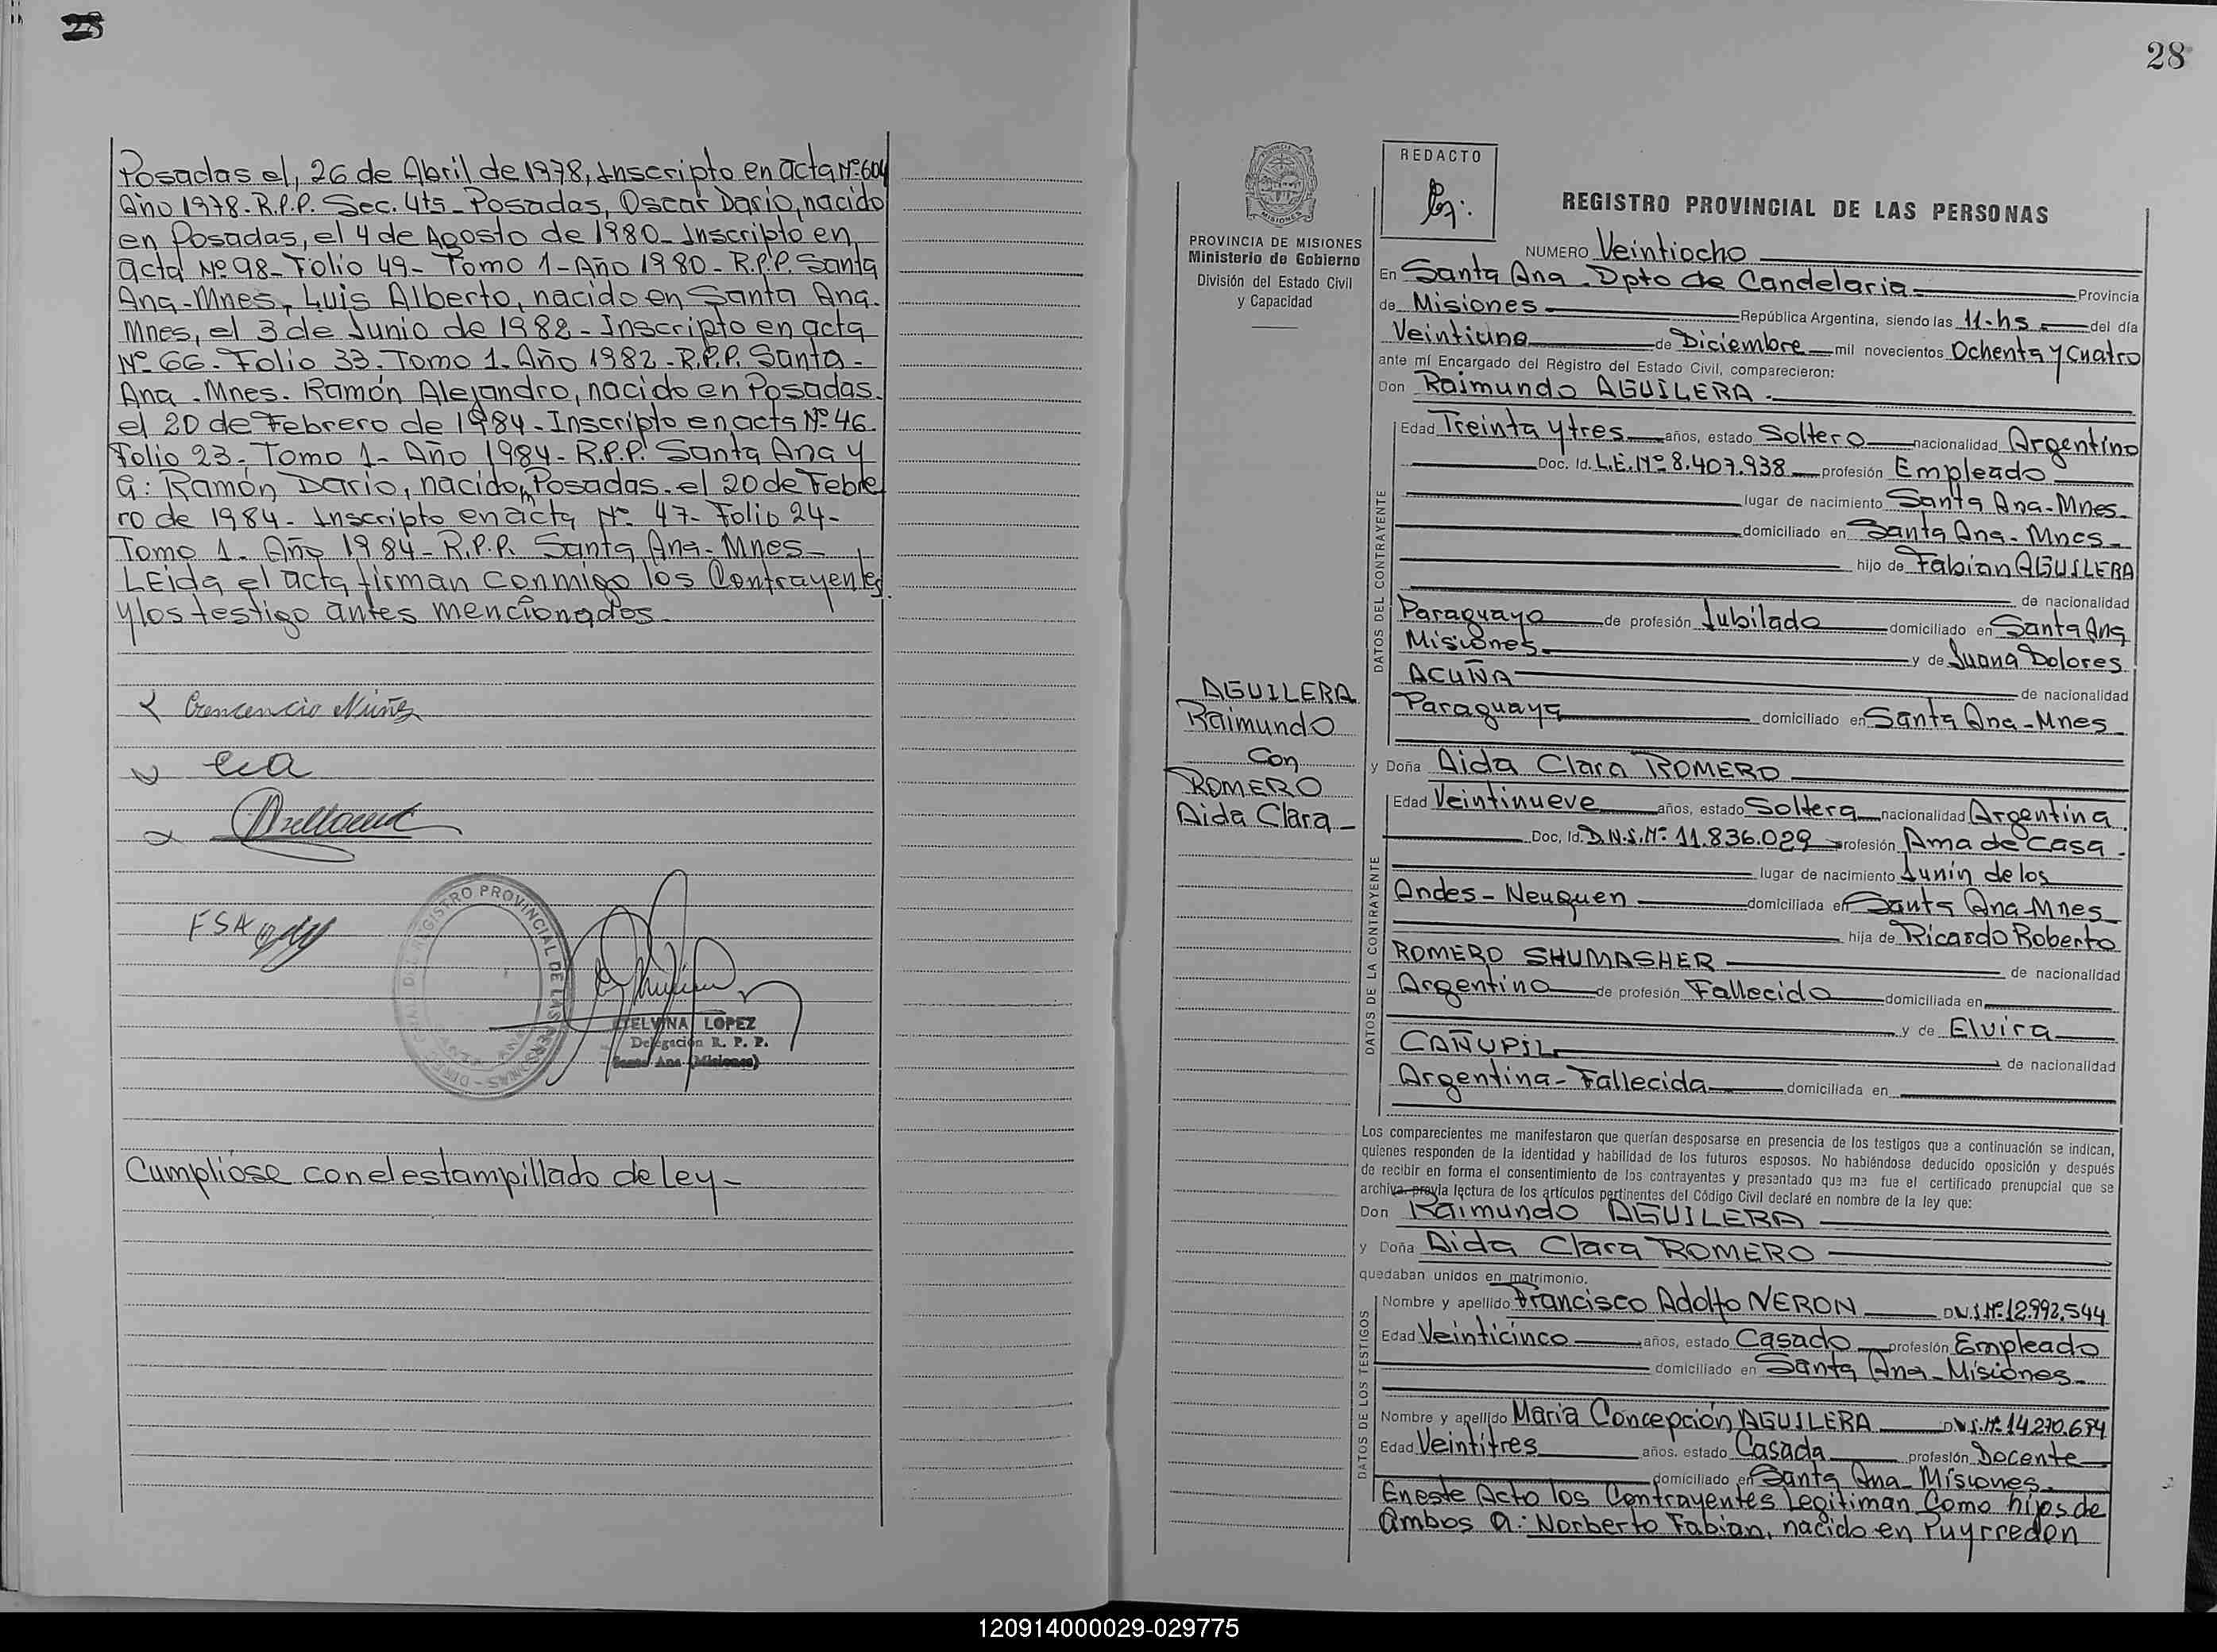 28
Posadas el, 26 de Abril de 1978, Inscripto en acta Nº604
Año 1978. R.P.P. Sec. 4ta - Posadas, Oscar Dario, nacido
en Posadas, el 4 de Agosto de 1980 - Inscripto en
acta Nº 98 - Folio 49 - Tomo 1 - Año 1980 - R.P.P. Santa
Ana - Mnes, Luis Alberto, nacido en Santa Ana.
Mnes, el 3 de Junio de 1982 - Inscripto en acta
Nº 66. Folio 33. Tomo 1. Año 1982 - R.P.P. Santa -
Ana. Mnes. Ramón Alejandro, nacido en Posadas.
el 20 de Febrero de 1984 - Inscripto en acta Nº 46.
Folio 23. Tomo 1 - Año 1984 - R.P.P. Santa Ana y
a: Ramón Dario, nacido en Posadas. el 20 de Febre
ro de 1984 - Inscripto en acta Nº 47 - Folio 24 -
Tomo 1 - Año 1984 - R.P.P. Santa Ana - Mnes -
LEida el acta firman conmigo los Contrayentes
y los testigo antes mencionados
Crencencio Núñez
REGISTRO PROVINCIAL DE LAS PERSONAS
ETELVINA LOPEZ
Delegación R. P. P.
Santa Ana (Misiones)
Cumpliose con el estampillado de ley -
28
REDACTO
PROVINCIA DE MISIONES
Ministerio de Gobierno
División del Estado Civil
y Capacidad
AGUILERA
Raimundo
Con
ROMERO
Aida Clara -
REGISTRO PROVINCIAL DE LAS PERSONAS
NUMERO Veintiocho
En Santa Ana - Dpto de Candelaria - Provincia
de Misiones República Argentina, siendo las 11 - hs - del día
Veintiuno de Diciembre mil novecientos Ochenta y Cuatro
ante mí Encargado del Registro del Estado Civil, comparecieron:
Don Raimundo AGUILERA -
DATOS DEL CONTRAYENTE
Edad Treinta y tres años, estado Soltero nacionalidad Argentino
Doc. Id. L.E. Nº 8.407.938 profesión Empleado
lugar de nacimiento Santa Ana - Mnes -
domiciliado en Santa Ana - Mnes -
hijo de Fabian AGUILERA
de nacionalidad
Paraguayo de profesión Jubilado domiciliado en Santa Ana
Misiones y de Juana Dolores
ACUÑA de nacionalidad
Paraguaya domiciliado en Santa Ana - Mnes
y Doña Aida Clara ROMERO
DATOS DE LA CONTRAYENTE
Edad Veintinueve años, estado Soltera nacionalidad Argentina
Doc. Id. D.N.I. Nº 11.836.029 profesión Ama de Casa -
lugar de nacimiento Junin de los
Andes - Neuquen domiciliada en Santa Ana - Mnes
hija de Ricardo Roberto
ROMERO SHUMASHER de nacionalidad
Argentino de profesión Fallecido domiciliada en
y de Elvira
CAÑUPIL de nacionalidad
Argentina - Fallecida domiciliada en
Los comparecientes me manifestaron que querían desposarse en presencia de los testigos que a continuación se indican,
quienes responden de la identidad y habilidad de los futuros esposos. No habiéndose deducido oposición y después
de recibir en forma el consentimiento de los contrayentes y presentado que me fue el certificado prenupcial que se
archiva, previa lectura de los artículos pertinentes del Código Civil declaré en nombre de la ley que:
Don Raimundo AGUILERA
y Doña Aida Clara ROMERO
quedaban unidos en matrimonio.
DATOS DE LOS TESTIGOS
Nombre y apellido Francisco Adolfo NERON D.N.I. Nº 12.992.544
Edad Veinticinco años, estado Casado profesión Empleado
domiciliado en Santa Ana - Misiones -
Nombre y apellido Maria Concepción AGUILERA D.N.I. Nº 14.270.694
Edad Veintitres años, estado Casada profesión Docente
domiciliado en Santa Ana - Misiones.
En este Acto los Contrayentes Legitiman Como hijos de
ambos a: Norberto Fabian, nacido en Puyrredon
120914000029-029775